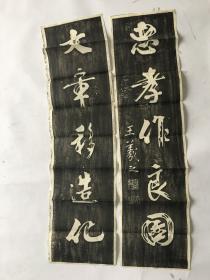 忠孝作良图
文章移造化
王羲之